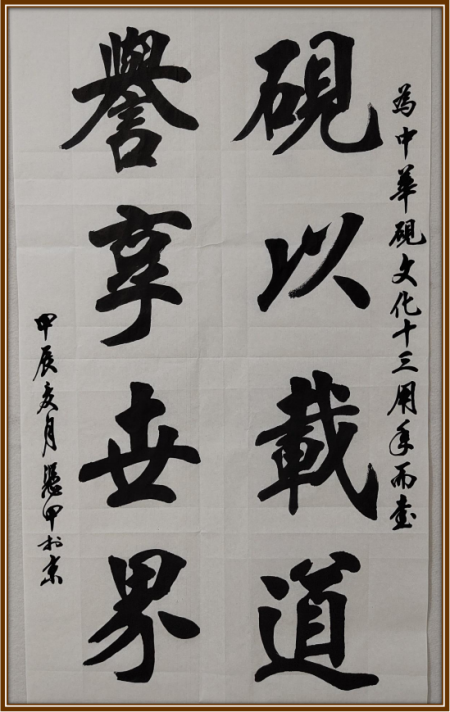 為中華硯文化十三周年而書
硯以載道
譽享世界
甲辰夏月甲於京